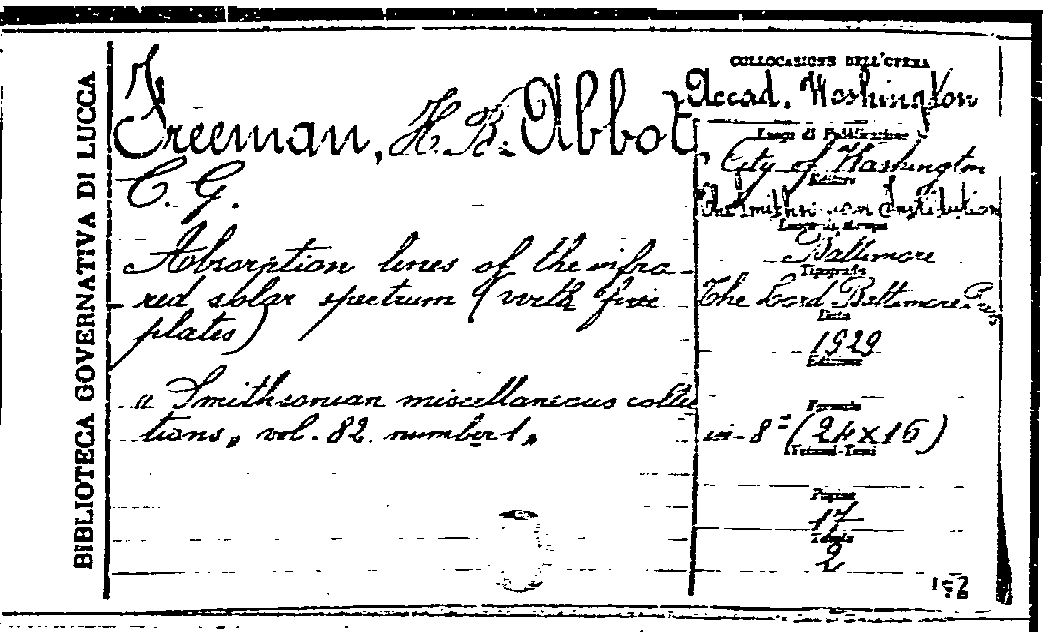 BIBLIOTECA GOVERNATIVA DI LUCCA
Freeman, H. B. Abbot,
C. G.
Absorption lines of the infra-
red solar spectrum (with five
plates)
"Smithsonian miscellaneous collec
tions" vol. 82 number 1"
COLLOCAZIONE DELL'OPERA
Accad. Washington
Luogo di Pubblicazione
City of Washington
Editore
Smithsonian Institution
Luogo di stampa
Baltimore
Tipografia
The Lord Baltimore Press
Data
1929
Edizione
Formato
in-8° (24x16)
Volumi-Tomi
Pagine
17
Tavole
2